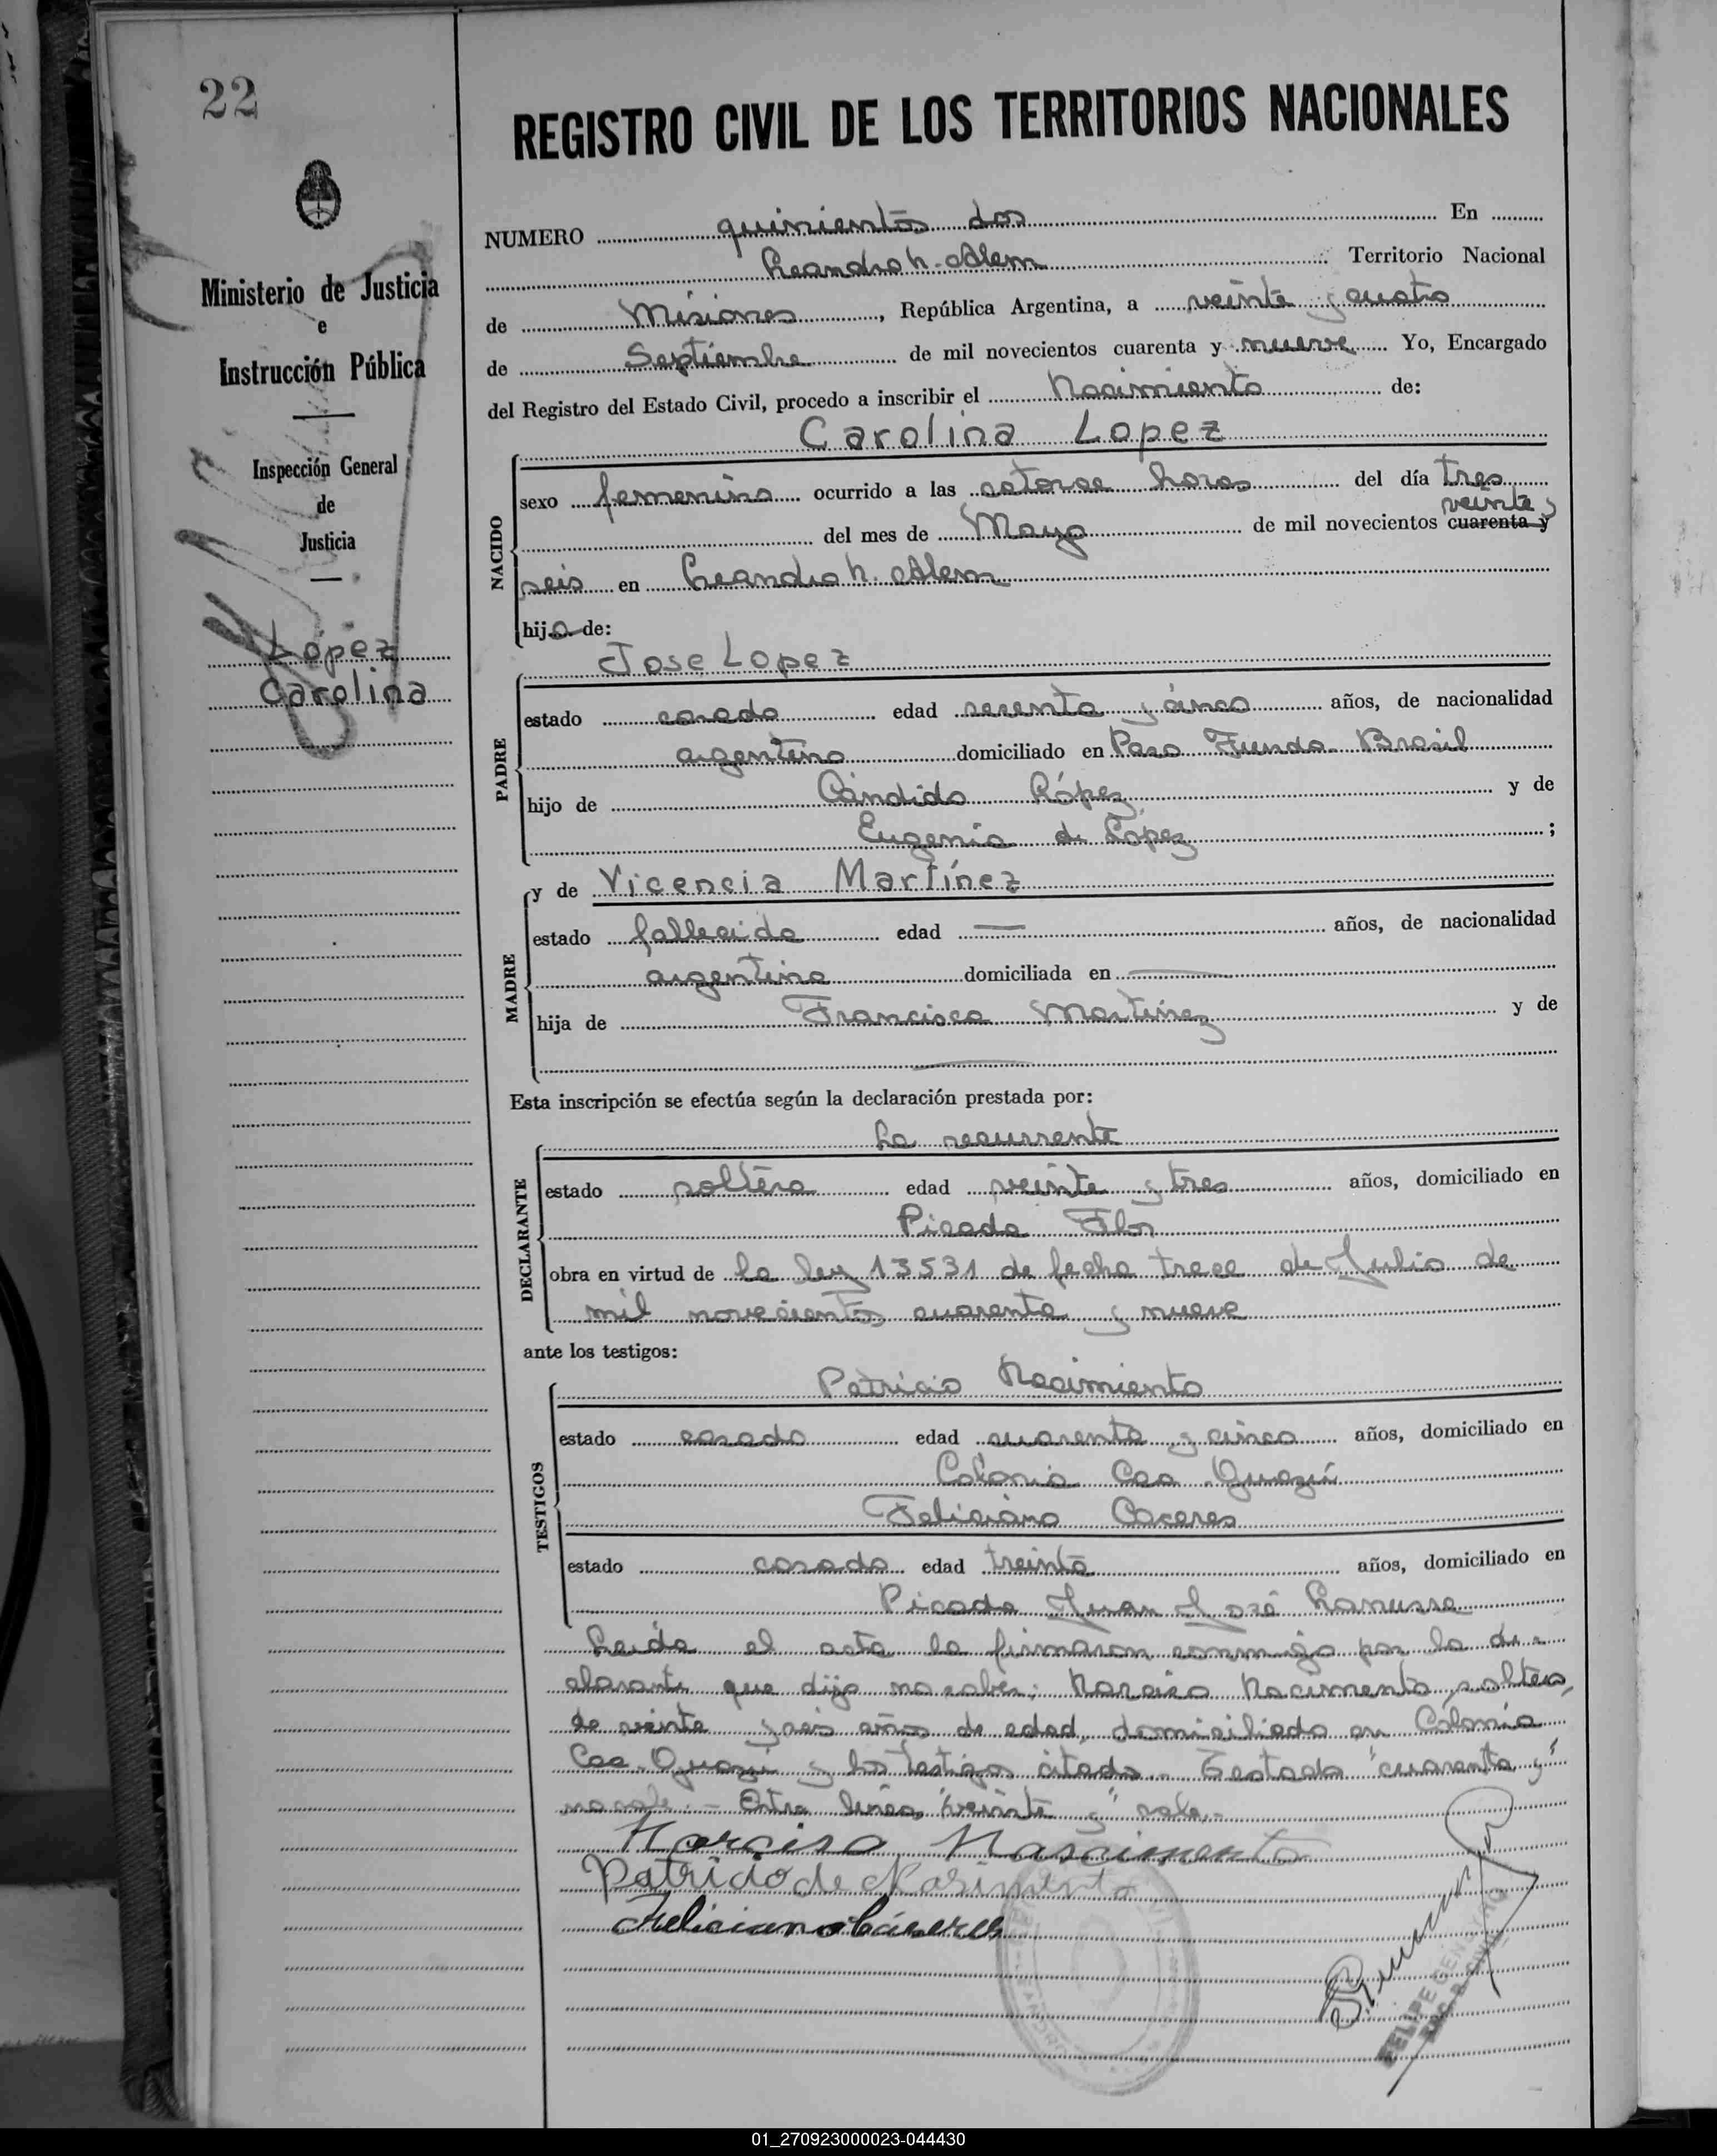 22
REGISTRO CIVIL DE LOS TERRITORIOS NACIONALES
Ministerio de Justicia
e
Instrucción Pública
Inspección General
de
Justicia
López
Carolina
NUMERO quinientos dos En
Leandro N. Alem Territorio Nacional
de Misiones, República Argentina, a veinte y cuatro
de Septiembre de mil novecientos cuarenta y nueve Yo, Encargado
del Registro del Estado Civil, procedo a inscribir el Nacimiento de:
Carolina Lopez
NACIDO
sexo femenino ocurrido a las catorce horas del día tres
veinte y
del mes de Mayo de mil novecientos cuarenta y
seis en Leandro N. Alem
hija de:
Jose Lopez
PADRE
estado casado edad sesenta y cinco años, de nacionalidad
argentino domiciliado en Paso Fundo Brasil
hijo de Cándido López y de
Eugenia de Lopez ;
y de Vicencia Martínez
MADRE
estado fallecida edad — años, de nacionalidad
argentina domiciliada en —
hija de Francisca Martínez y de
—
Esta inscripción se efectúa según la declaración prestada por:
La recurrente
DECLARANTE
estado soltera edad veinte y tres años, domiciliado en
Picada Flor
obra en virtud de la ley 13531 de fecha trece de Julio de
mil novecientos cuarenta y nueve
ante los testigos:
Patricio Nacimiento
TESTIGOS
estado casado edad cuarenta y cinco años, domiciliado en
Colonia Caa Guazú
Feliciano Caceres
estado casado edad treinta años, domiciliado en
Picada Juan José Lanusse
Leída el acta la firmaron conmigo por la de-
clarante que dijo no saber: Narciso Nacimento, soltero,
de veinte y seis años de edad, domiciliado en Colonia
Caa Guazú y los testigos citados. Testado "cuarenta y"
no vale. - Entre líneas "veinte y" vale.-
Narciso Nascimento
Patricio de Nasimento
Feliciano Cáceres
FELIPE
01_270923000023-044430